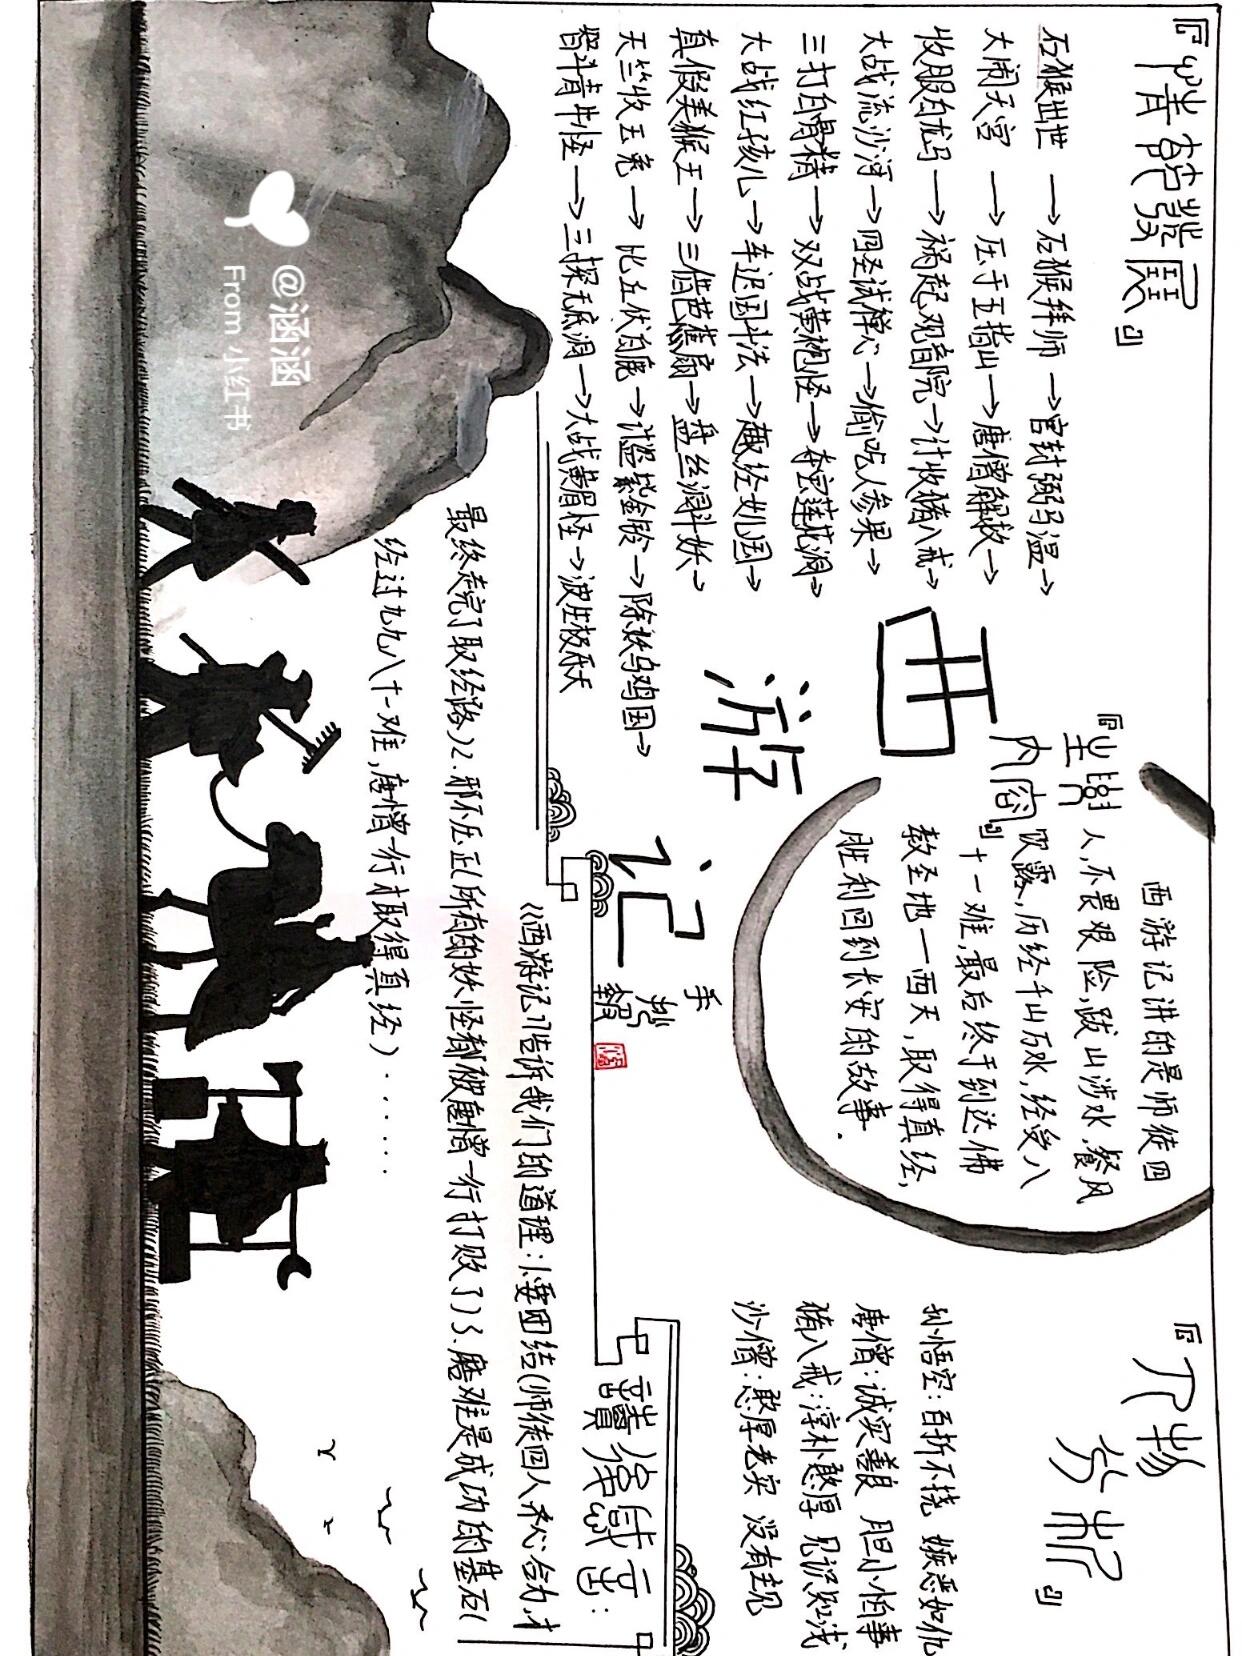 『情节发展』
石猴出世→石猴拜师→官封弼马温→
大闹天宫→压于五指山→唐僧解救→
收服白龙马→祸起观音院→计收猪八戒→
大战流沙河→四圣试禅心→偷吃人参果→
三打白骨精→双战黄袍怪→夺宝莲花洞→
大战红孩儿→车迟国斗法→趣经女儿国→
真假美猴王→三借芭蕉扇→盘丝洞斗妖→
天竺收玉兔→比丘伏白鹿→计盗紫金铃→除妖乌鸡国→
智斗青牛怪→三探无底洞→大战黄眉怪→波生极乐天
西游记
手抄报
『主要内容』
西游记讲的是师徒四
人,不畏艰险,跋山涉水,餐风
饮露,历经千山万水,经受八
十一难,最后终于到达佛
教圣地一西天,取得真经,
胜利回到长安的故事.
『人物分析』
孙悟空:百折不挠 嫉恶如仇
唐僧:诚实善良 胆小怕事
猪八戒:淳朴憨厚 见识短浅
沙僧:憨厚老实 没有主见
读后感言:
《西游记》告诉我们的道理:1.要团结(师徒四人齐心合力,才
最终走完了取经路)2.邪不压正(所有的妖怪都被唐僧一行打败了)3.磨难是成功的基石(
经过九九八十一难,唐僧一行人取得真经)......
@涵涵
From 小红书